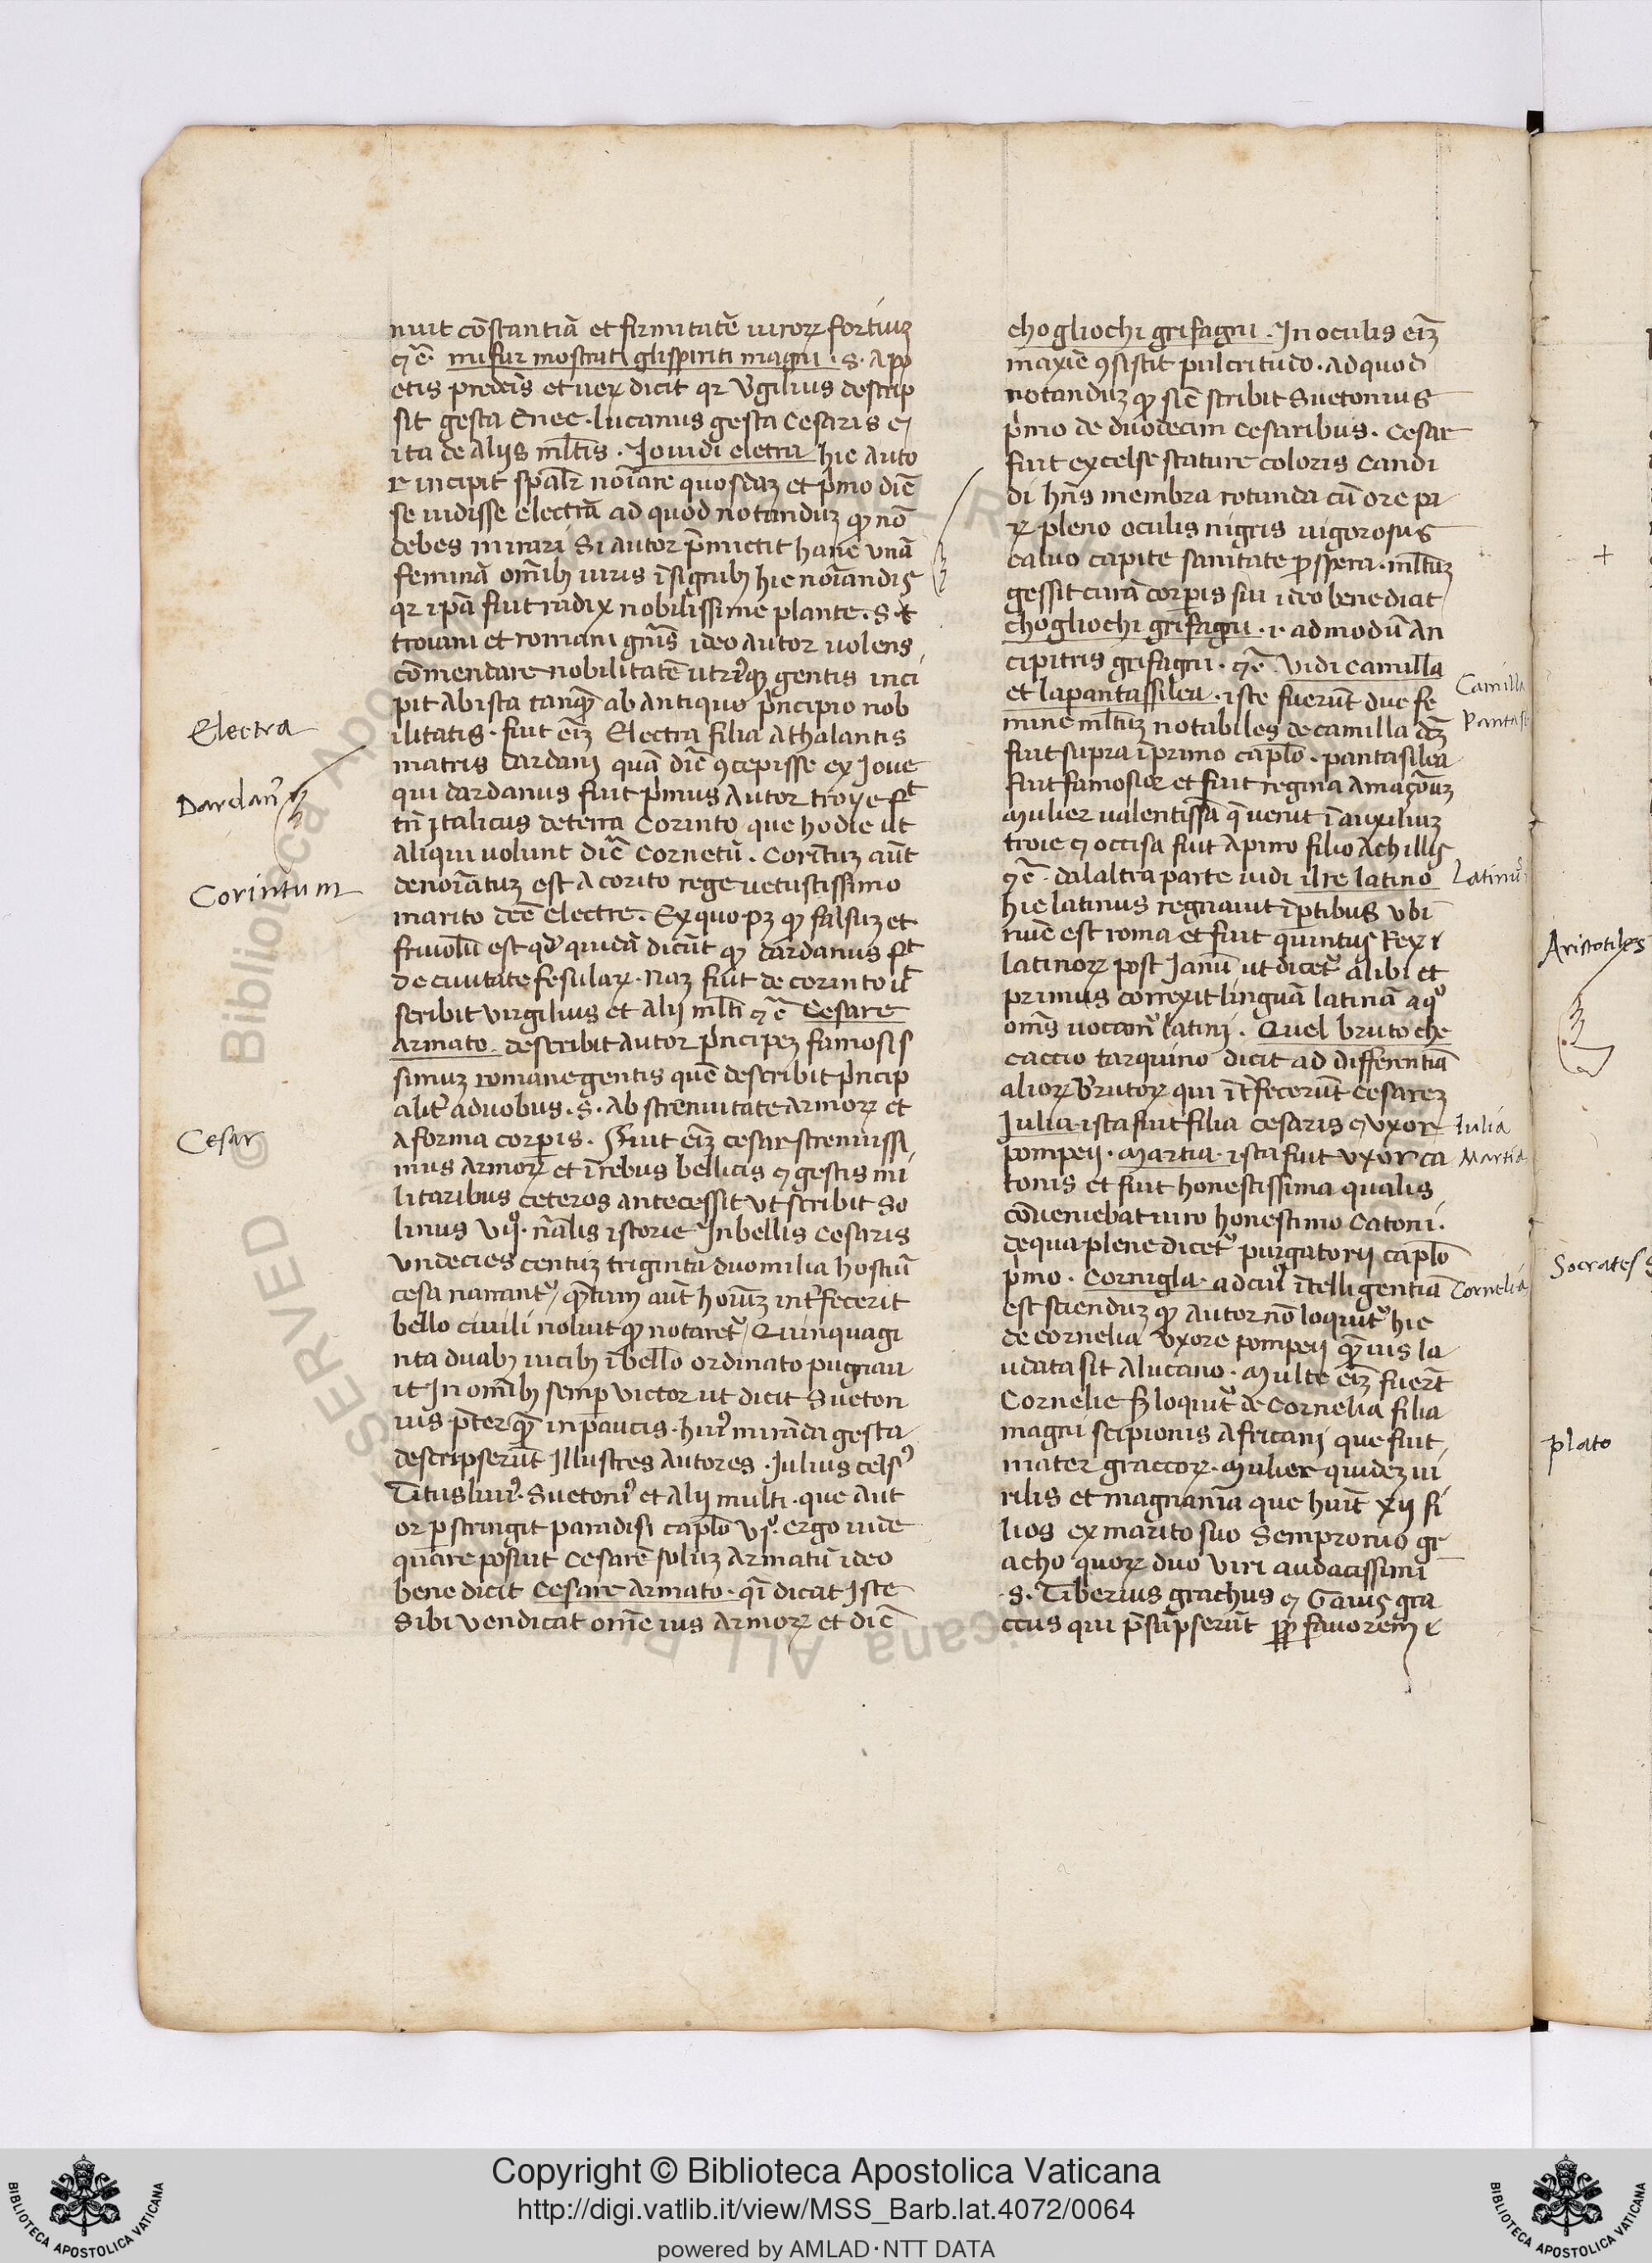 nuit cõstantiã et firmitatẽ uiroꝝ fortiuꝫ
⁊c̃. mi fur mostrati glispiriti magni . s. a po
etis predcĩs et ueꝝ dicit qꝛ Virgilius descrip
sit gesta Enee . lucanus gesta Cesaris ⁊
ita de alijs ml̃tis . Io uidi eletra hic auto
r incipit spãlr noĩare quosdaꝫ et pͥmo dic̃
se uidisse electrã ad quod notanduꝫ ꝙ nõ
debes mirari Si autor p̃mictit hanc unã
feminã om̃ibꝫ uiris ĩsignibꝫ hic noĩandis
qꝛ ip̃a fuit radix nobilissime plante . S.
troiani et romani gñis ideo autor uolens
cõmendare nobilitatẽ utriꝰqꝫ gentis inci
pit ab ista tanqᷓ ab antiquo pͥncipio nob
ilitatis . fuit eĩꝫ Electra filia Athalantis
matris dardani quã dic̃ ꝯcepisse ex Ioue
qui dardanus fuit pͥmus autor troye
tñ ytalicus de terra Corinto que hodie ut
aliqui uolunt dic̃ Cornetũ . Corĩtuꝫ aũt
denoĩatuꝫ est a corito rege uetustissimo
marito dcẽ electre . Ex quo pꝫ ꝙ falsuꝫ et
friuolũ est qd̾ quidã dicũt ꝙ dardanus
de ciuitate fesulaꝝ . naꝫ fuit de corinto
scribit virgilius et alij ml̃ti ⁊c̃ Cesare
armato . describit autor pͥncipeꝫ famosis
simuꝫ romane gentis quẽ describit pͥncip
alit̾ a duobus . s . ab strenuitate armoꝝ et
a forma corpis . Fuit eĩꝫ cesar strenuissi
mus armoꝝ et ĩ rebus bellicis ⁊ gestis mi
litaribus ceteros antecessit ut scribit so
linus vijᵒ . nãlis istorie In bellis Cesaris
undecies centuꝫ triginta duo milia hostiũ
cesa narrantᷣ / qᷓtum aũt hoĩuꝫ int̾fecerit
bello ciuili noluit ꝙ notaretᷣ / Quinquagi
nta duabꝫ uicibꝫ ĩ bello ordinato pugnau
it In om̃ibꝫ semp victor ut dicit Sueton
ius p̃terqᷓ in paucis . huiꝰ mirãda gesta
descripserũt Illustres autores . Iulius celsꝰ
Titus liuiꝰ . Suetoniꝰ et alij multi . que aut
or pstringit paradisi caplo vjᵒ . ergo uide
quare posuit Cesarẽ soluꝫ armatũ ideo
bene dicit Cesare armato . qͣi dicat Iste
Sibi vendicat om̃e ius armoꝝ et dic̃
chogliochi grifagni . In oculis eĩꝫ
maxĩe ꝯsistit pulcritudo . ad quod
notanduꝫ ꝙ sic̃ scribit Suetonius
pͥmo de duodecim Cesaribus . Cesar
fuit excelse stature coloris candi
di hñs membra rotunda cũ ore pa
ꝝ pleno oculis nigris uigorosus
caluo capite sanitate pspera . ml̃tuꝫ
gessit curã corpis sui ideo bene dicit
chogliochi grifagni . i . ad modũ an
cipitris grifagni . ⁊c̃ Vidi camilla
et la pantassilea . iste fuerũt due fe
mine ml̃tuꝫ notabiles de camilla dc̃ꝫ
fuit supra ĩ primo caplo . pantasilea
fuit famosior et fuit regina amaçonuꝫ
mulier ualentissĩa q̃ uenit ĩ auxiliuꝫ
troie ⁊ occisa fuit a pirro filio Achillis
⁊c̃ . dalaltra parte uidi il re latino
hic latinus regnauit ĩ ptibus ubi
nũc est roma et fuit quintus Rex
latinoꝝ post Ianũ ut dicetᷣ alibi et
primus correxit linguã latinã a qͦ
om̃s uocantᷣ latini . Quel bruto che
caccio tarquino dicit ad differentiã
alioꝝ Brutoꝝ qui ĩt̾fecerũt Cesareꝫ
Iulia . ista fuit filia Cesaris ⁊ uxor
pompeij . Martia . ista fuit uxor ca
tonis et fuit honestissima qualis
cõueniebat uiro honestimo Catoni .
de qua plene dicetᷣ purgatorij caplo
pͥmo . Cornigla . ad cuiꝰ ĩtelligentiã
est scienduꝫ ꝙ autor nõ loquitᷣ hic
de cornelia uxore pompeij qᷓuis la
udata sit a lucano . Multe eĩꝫ fuerũt
Cornelie sꝫ loquitᷣ de Cornelia filia
magni scipionis africani que fuit
mater graccoꝝ . mulier quideꝫ ui
rilis et magnanĩa que huit xij fi
lios ex marito suo Sempronio gr
acho quoꝝ duo viri audacissimi
. S. Tiberius grachus ⁊ Gaius gra
ccus qui p̃sũpserũt ꝓp̃ fauorem
Electra
Dardanꝰ
Corintum
Cesar
Camilla
Pantas
Latinus
Iulia
Martia
Cornelia
Aristotiles
Socrates
plato
© Biblioteca Apostolica Vaticana ALL RIGHTS RESERVED
Copyright © Biblioteca Apostolica Vaticana
http://digi.vatlib.it/view/MSS_Barb.lat.4072/0064
powered by AMLAD·NTT DATA
BIBLIOTECA APOSTOLICA VATICANA
BIBLIOTECA APOSTOLICA VATICANA